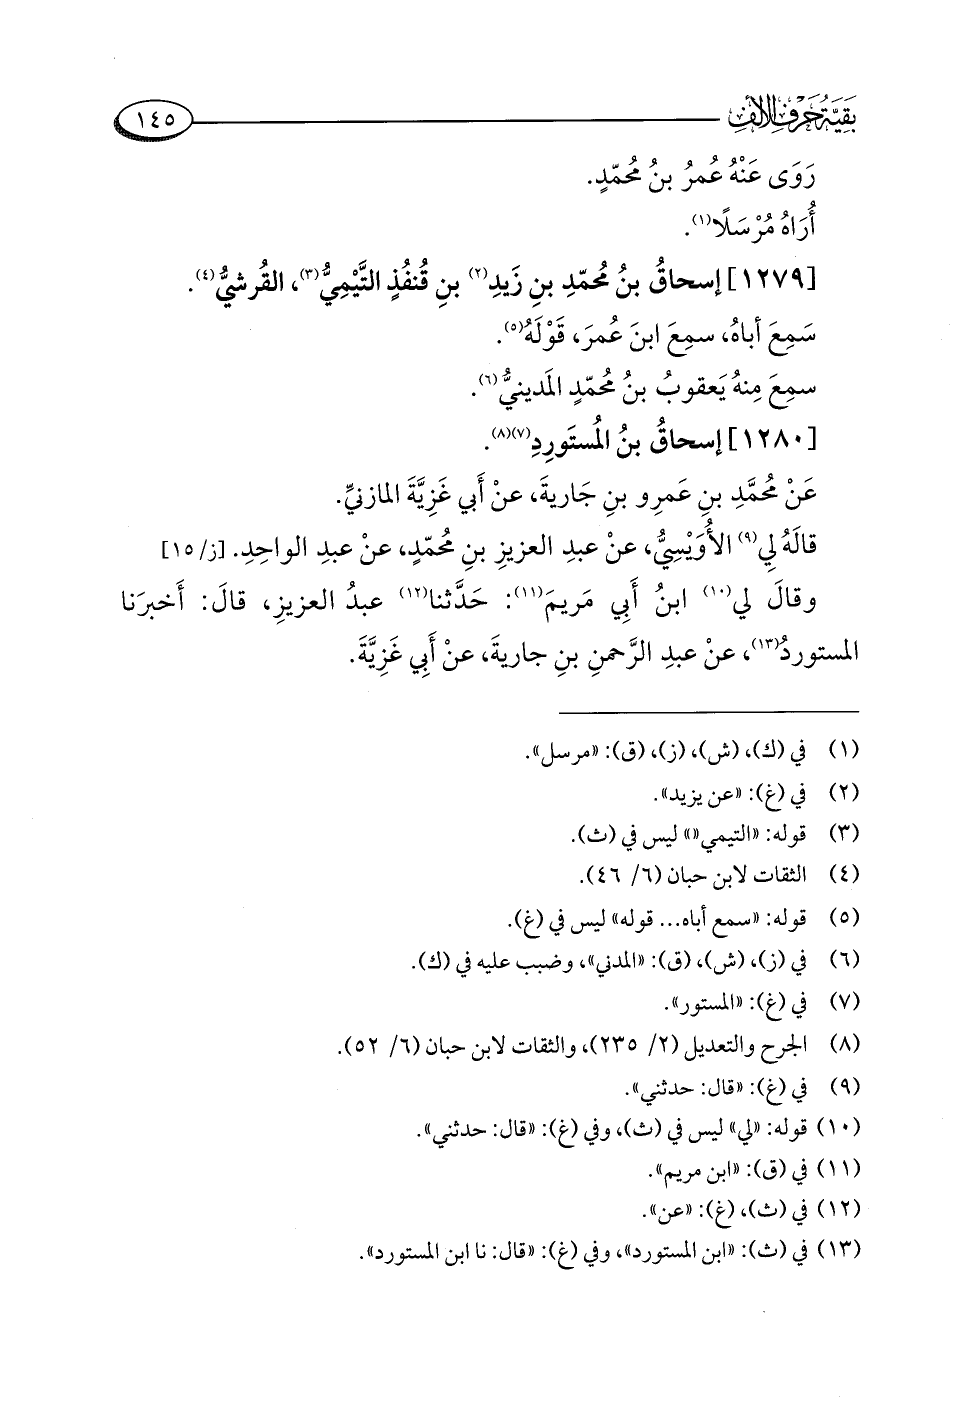 بَقِيَّةُ حَرْفِ الْأَلِفِ ١٤٥
رَوَى عَنْهُ عُمرُ بنُ مُحمّدٍ.
أُرَاهُ مُرْسَلًا(١).
[١٢٧٩] إسحاقُ بنُ مُحمّدِ بنِ زَيدِ(٢) بنِ قُنفُذٍ التَّيْمِيُّ(٣)، القُرشيُّ(٤).
سَمِعَ أباهُ، سمِعَ ابنَ عُمرَ، قَوْلَهُ(٥).
سمِعَ مِنهُ يَعقوبُ بنُ مُحمّدٍ المَدينيُّ(٦).
[١٢٨٠] إسحاقُ بنُ المُستَورِدِ(٧)(٨).
عَنْ مُحمَّدِ بنِ عَمرِو بنِ جَاريةَ، عنْ أَبي غَزِيَّةَ المازنيِّ.
قالَهُ لي(٩) الأُوَيْسِيُّ، عنْ عبدِ العزيزِ بنِ مُحمّدٍ، عنْ عبدِ الواحِدِ. [ز/ ١٥]
وقالَ لي(١٠) ابنُ أَبي مَريمَ(١١): حَدَّثنا(١٢) عبدُ العزيزِ، قالَ: أَخبرَنا
المستوردُ(١٣)، عنْ عبدِ الرَّحمنِ بنِ جاريةَ، عنْ أَبي غَزِيَّةَ.
(١) في (ك)، (ش)، (ز)، (ق): «مرسل».
(٢) في (غ): «عن يزيد».
(٣) قوله: «التيمي«» ليس في (ث).
(٤) الثقات لابن حبان (٦/ ٤٦).
(٥) قوله: «سمع أباه... قوله» ليس في (غ).
(٦) في (ز)، (ش)، (ق): «المدني»، وضبب عليه في (ك).
(٧) في (غ): «المستور».
(٨) الجرح والتعديل (٢/ ٢٣٥)، والثقات لابن حبان (٦/ ٥٢).
(٩) في (غ): «قال: حدثني».
(١٠) قوله: «لي» ليس في (ث)، وفي (غ): «قال: حدثني».
(١١) في (ق): «ابن مريم».
(١٢) في (ث)، (غ): «عن».
(١٣) في (ث): «ابن المستورد»، وفي (غ): «قال: نا ابن المستورد».